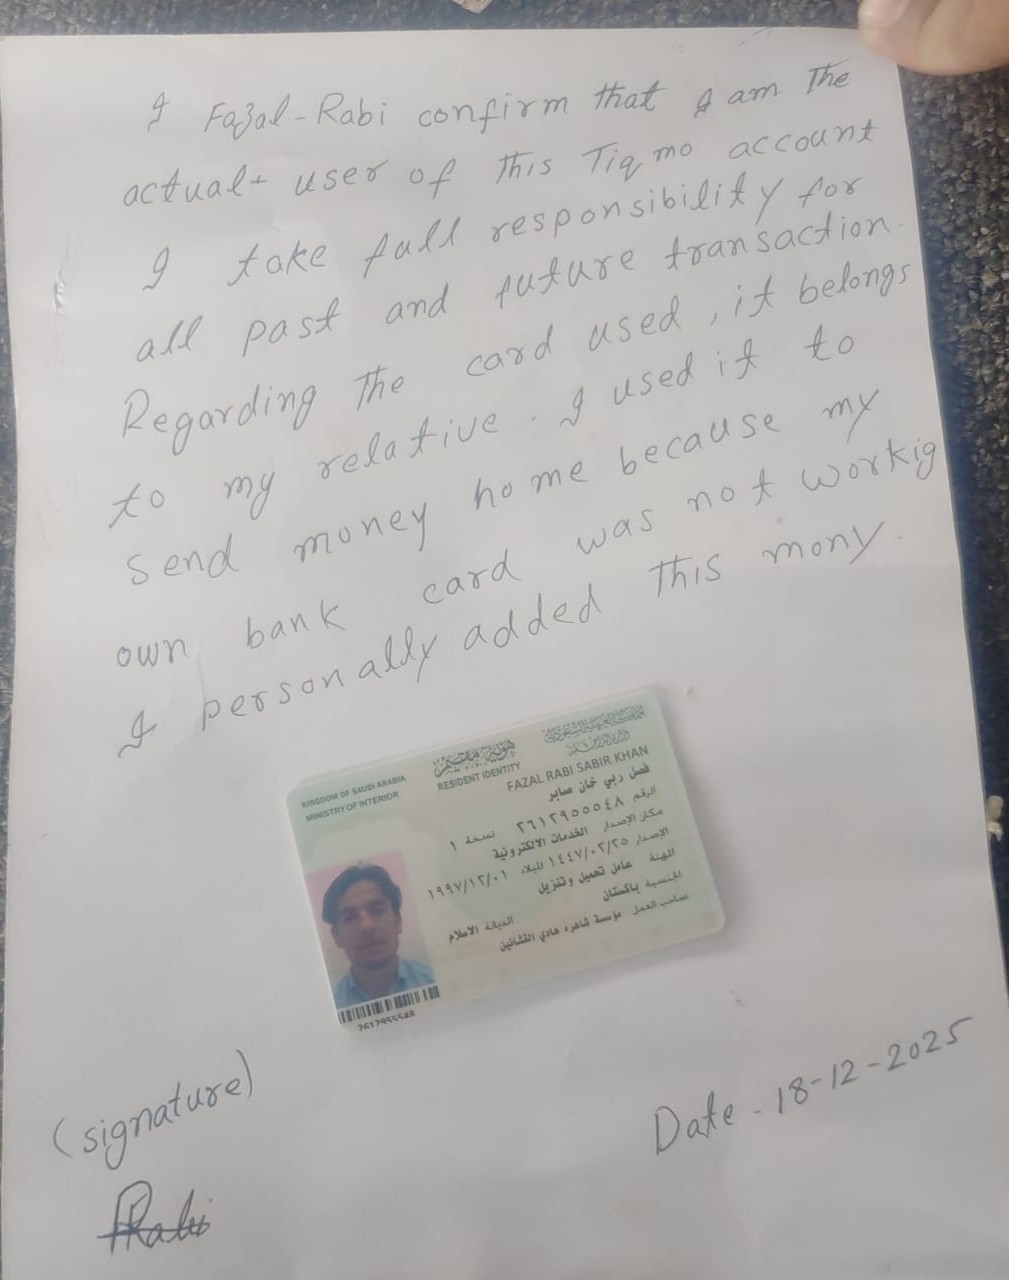 I Fazal-Rabi confirm that I am The
actual user of This Tiqmo account
I take full responsibility for
all past and future transaction.
Regarding The card used, it belongs
to my relative. I used it to
Send money home because my
own bank card was not workig
I personally added This mony.
KINGDOM OF SAUDI ARABIA
MINISTRY OF INTERIOR
هوية مقيم
RESIDENT IDENTITY
المملكة العربية السعودية
وزارة الداخلية
FAZAL RABI SABIR KHAN
فضل ربي خان صابر
الرقم ٢٦١٢٩٥٥٥٤٨ نسخة ١
مكان الإصدار الخدمات الالكترونية
الإصدار ١٤٤٧/٠٢/٢٥ الميلاد ١٩٩٧/١٢/٠١
المهنة عامل تحميل وتنزيل
الجنسية باكستان الديانة الاسلام
صاحب العمل مؤسسة هادي
2612955548
(signature)
Rabi
Date - 18-12-2025